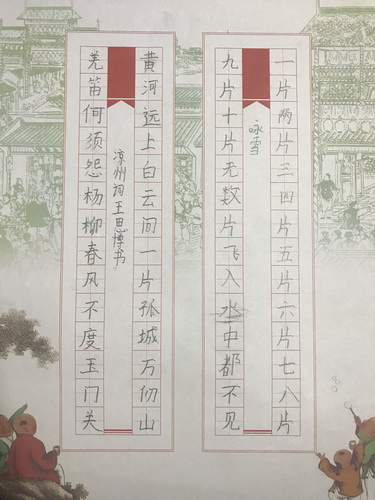 一片两片三四片五片六片七八片
咏雪
九片十片无数片飞入水中都不见
黄河远上白云间一片孤城万仞山
凉州词 王思博书
羌笛何须怨杨柳春风不度玉门关